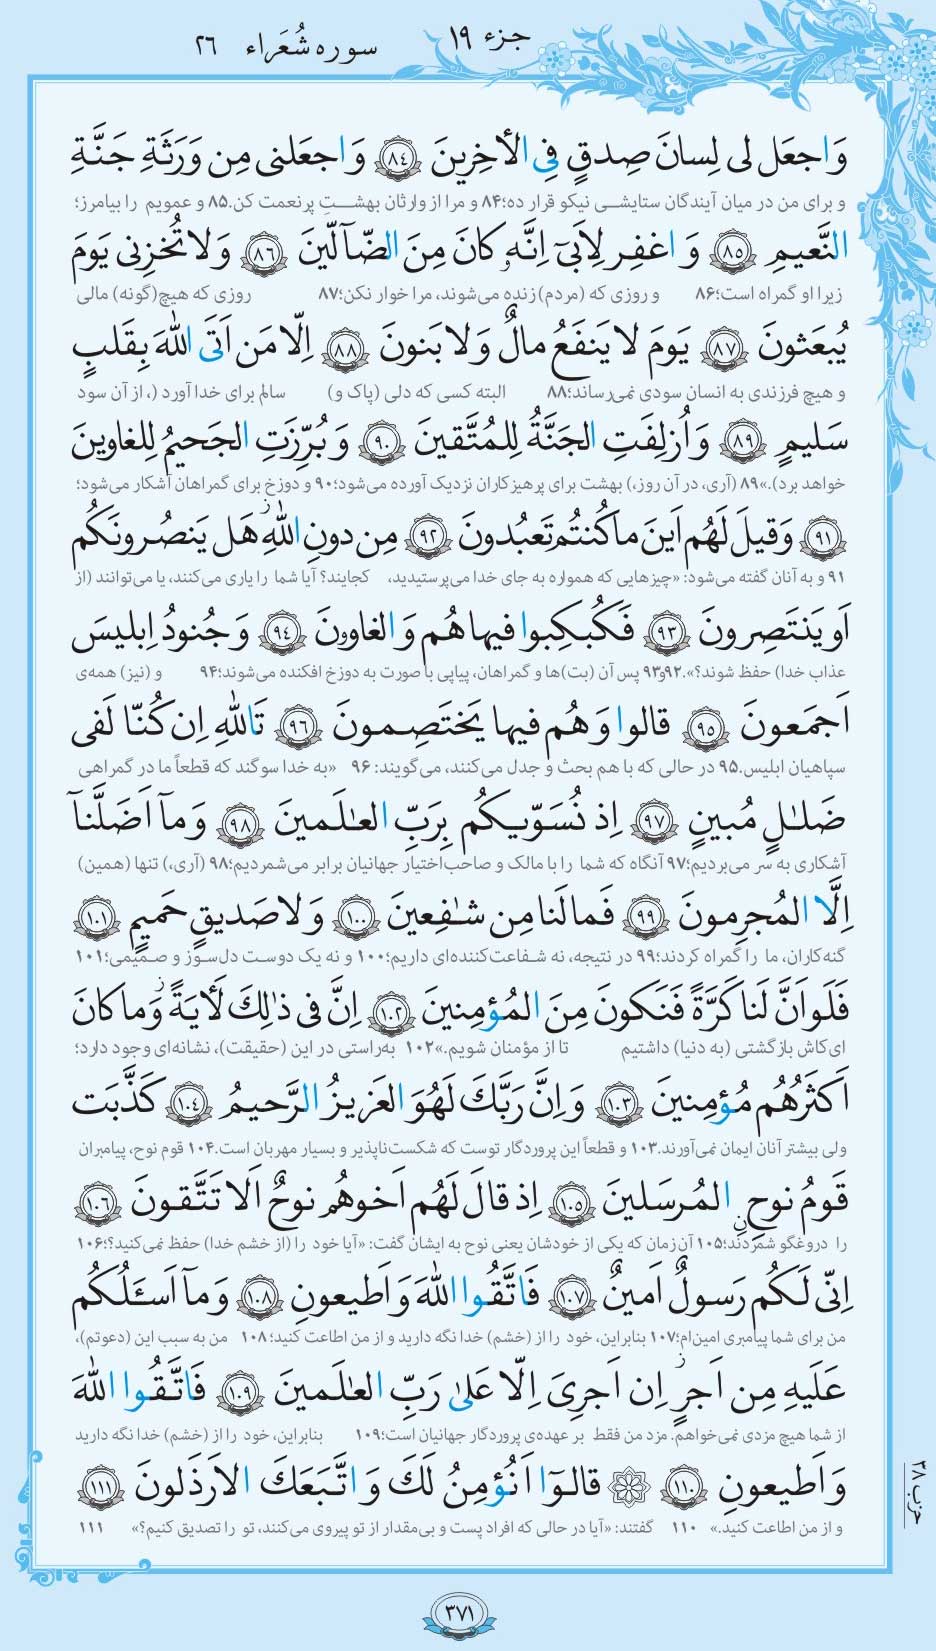 جزء ۱۹
سوره شُعَراء ۲۶
وَاجعَل لی لِسانَ صِدقٍ فِی الأخِرینَ ﴿۸۴﴾ وَاجعَلنی مِن وَرَثَةِ جَنَّةِ
و برای من در میان آیندگان ستایشی نیکو قرار ده؛۸۴ و مرا از وارثان بهشتِ پرنعمت کن.۸۵ و عمویم را بیامرز؛
النَّعیمِ ﴿۸۵﴾ وَاغفِر لِاَبیٓ اِنَّهٗ کانَ مِنَ الضّآلّینَ ﴿۸۶﴾ وَلا تُخزِنی یَومَ
زیرا او گمراه است؛۸۶ و روزی که (مردم) زنده می‌شوند، مرا خوار نکن؛۸۷ روزی که هیچ (گونه) مالی
یُبعَثونَ ﴿۸۷﴾ یَومَ لا یَنفَعُ مالٌ وَلا بَنونَ ﴿۸۸﴾ اِلّا مَن اَتَی اللهَ بِقَلبٍ
و هیچ فرزندی به انسان سودی نمی‌رساند؛۸۸ البته کسی که دلی (پاک و) سالم برای خدا آورد (، از آن سود
سَلیمٍ ﴿۸۹﴾ وَاُزلِفَتِ الجَنَّةُ لِلمُتَّقینَ ﴿۹۰﴾ وَبُرِّزَتِ الجَحیمُ لِلغاوینَ
خواهد برد).»۸۹ (آری، در آن روز،) بهشت برای پرهیزکاران نزدیک آورده می‌شود؛۹۰ و دوزخ برای گمراهان آشکار می‌شود؛
﴿۹۱﴾ وَقیلَ لَهُم اَینَ ما کُنتُم تَعبُدونَ ﴿۹۲﴾ مِن دونِ اللهِ هَل یَنصُرونَکُم
۹۱ و به آنان گفته می‌شود: «چیزهایی که همواره به جای خدا می‌پرستیدید، کجایند؟ آیا شما را یاری می‌کنند، یا می‌توانند (از
اَو یَنتَصِرونَ ﴿۹۳﴾ فَکُبکِبوا فیها هُم وَالغاوٗنَ ﴿۹۴﴾ وَجُنودُ اِبلیسَ
عذاب خدا) حفظ شوند؟».۹۲و۹۳ پس آن (بت)ها و گمراهان، پیاپی با صورت به دوزخ افکنده می‌شوند؛۹۴ و (نیز) همه‌ی
اَجمَعونَ ﴿۹۵﴾ قالوا وَهُم فیها یَختَصِمونَ ﴿۹۶﴾ تَاللهِ اِن کُنّا لَفی
سپاهیان ابلیس.۹۵ در حالی که با هم بحث و جدل می‌کنند، می‌گویند: ۹۶ «به خدا سوگند که قطعاً ما در گمراهی
ضَلـٰلٍ مُبینٍ ﴿۹۷﴾ اِذ نُسَوّیکُم بِرَبِّ العـٰلَمینَ ﴿۹۸﴾ وَمآ اَضَلَّنآ
آشکاری به سر می‌بردیم؛۹۷ آنگاه که شما را با مالک و صاحب‌اختیار جهانیان برابر می‌شمردیم؛۹۸ (آری،) تنها (همین)
اِلَّا المُجرِمونَ ﴿۹۹﴾ فَما لَنا مِن شـٰفِعینَ ﴿۱۰۰﴾ وَلا صَدیقٍ حَمیمٍ ﴿۱۰۱﴾
گنه‌کاران، ما را گمراه کردند؛۹۹ در نتیجه، نه شفاعت‌کننده‌ای داریم؛۱۰۰ و نه یک دوست دل‌سوز و صمیمی؛۱۰۱
فَلَو اَنَّ لَنا کَرَّةً فَنَکونَ مِنَ المُؤمِنینَ ﴿۱۰۲﴾ اِنَّ فی ذٰلِکَ لَأیَةً وَما کانَ
ای‌کاش بازگشتی (به دنیا) داشتیم تا از مؤمنان شویم.»۱۰۲ به‌راستی در این (حقیقت)، نشانه‌ای وجود دارد؛
اَکثَرُهُم مُؤمِنینَ ﴿۱۰۳﴾ وَاِنَّ رَبَّکَ لَهُوَ العَزیزُ الرَّحیمُ ﴿۱۰۴﴾ کَذَّبَت
ولی بیشتر آنان ایمان نمی‌آورند.۱۰۳ و قطعاً این پروردگار توست که شکست‌ناپذیر و بسیار مهربان است.۱۰۴ قوم نوح، پیامبران
قَومُ نوحٍ المُرسَلینَ ﴿۱۰۵﴾ اِذ قالَ لَهُم اَخوهُم نوحٌ اَلا تَتَّقونَ ﴿۱۰۶﴾
را دروغگو شمردند؛۱۰۵ آن زمان که یکی از خودشان یعنی نوح به ایشان گفت: «آیا خود را (از خشم خدا) حفظ نمی‌کنید؟؛۱۰۶
اِنّی لَکُم رَسولٌ اَمینٌ ﴿۱۰۷﴾ فَاتَّقُوا اللهَ وَاَطیعونِ ﴿۱۰۸﴾ وَمآ اَسـَٔلُکُم
من برای شما پیامبری امین‌ام؛۱۰۷ بنابراین، خود را از (خشم) خدا نگه دارید و از من اطاعت کنید؛۱۰۸ من به سبب این (دعوتم)،
عَلَیهِ مِن اَجرٍ اِن اَجرِیَ اِلّا عَلیٰ رَبِّ العـٰلَمینَ ﴿۱۰۹﴾ فَاتَّقُوا اللهَ
از شما هیچ مزدی نمی‌خواهم. مزد من فقط بر عهده‌ی پروردگار جهانیان است؛۱۰۹ بنابراین، خود را از (خشم) خدا نگه دارید
وَاَطیعونِ ﴿۱۱۰﴾ قالوٓا اَنُؤمِنُ لَکَ وَاتَّبَعَکَ الاَرذَلونَ ﴿۱۱۱﴾
و از من اطاعت کنید.» ۱۱۰ گفتند: «آیا در حالی که افراد پست و بی‌مقدار از تو پیروی می‌کنند، تو را تصدیق کنیم؟» ۱۱۱
حزب ۳۸
۳۷۱